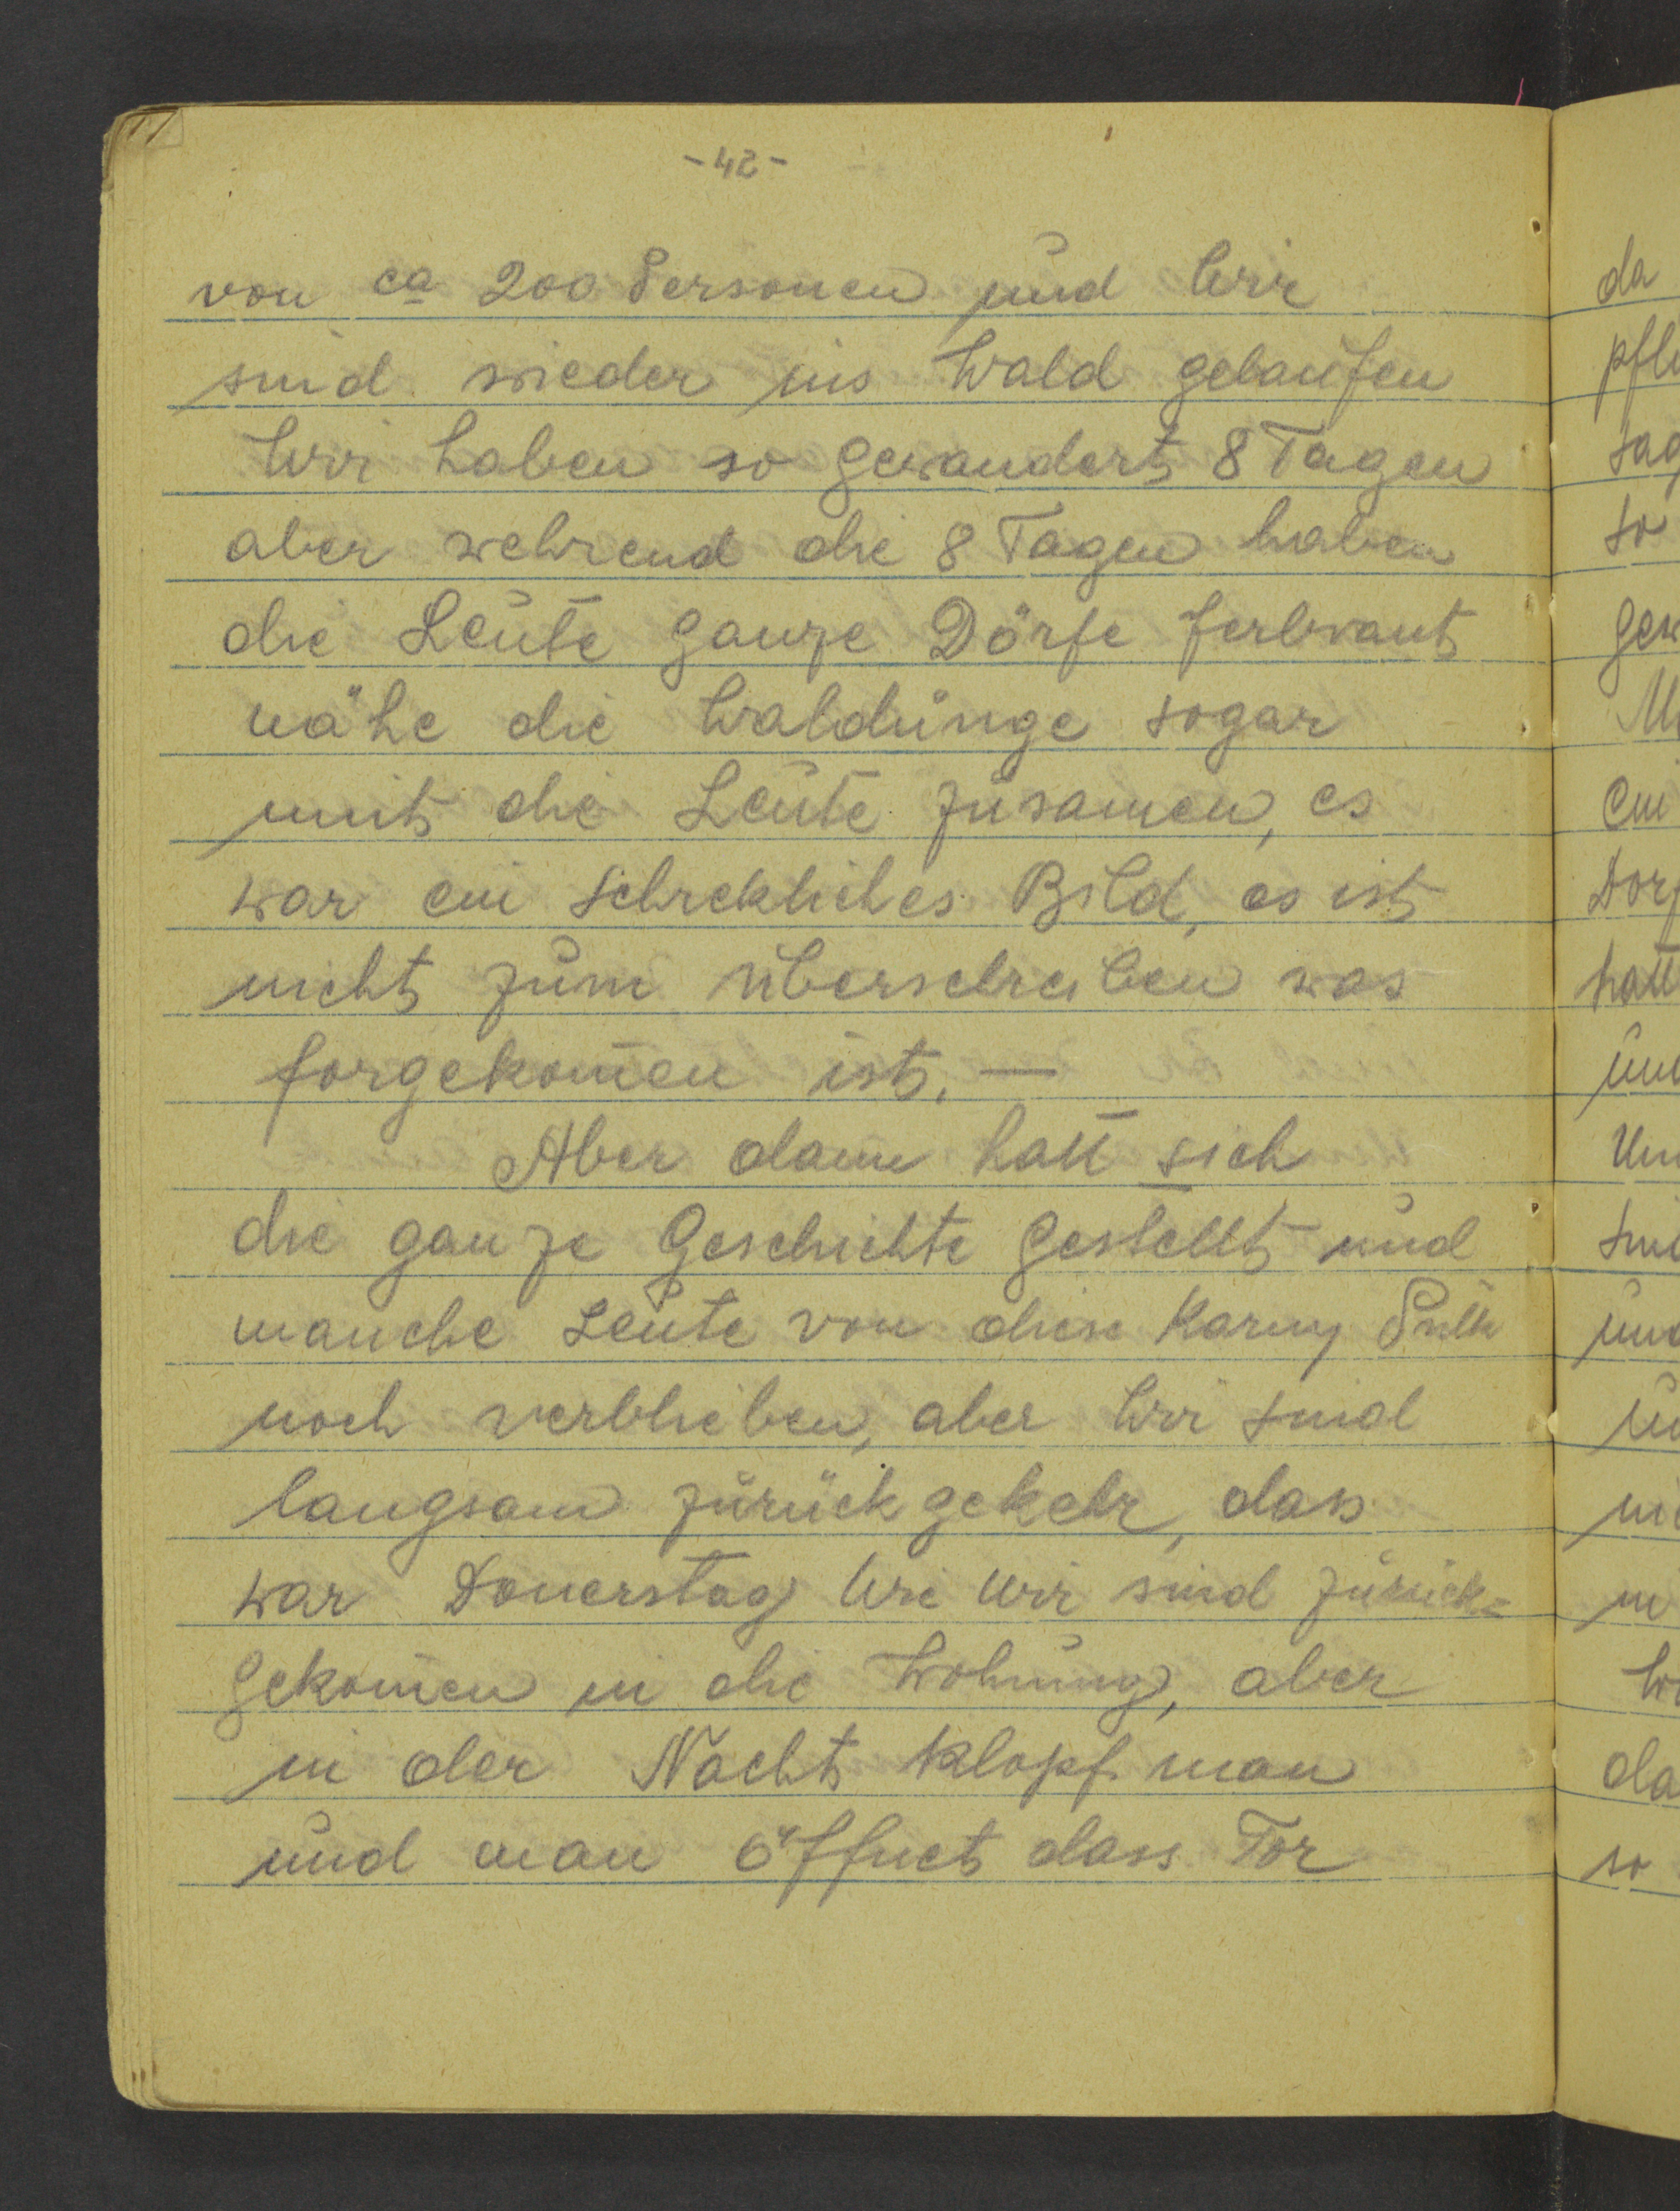 -42-
von ca 200 Personen und Wir
sind wieder ins Wald gelaufen
Wir haben so gewandert 8 Tagen
aber wehrend die 8 Tagen haben
die Leute ganze Dörfe ferbrant
nähe die Waldunge sogar
mit die Leute zusamen, es
war ein schrekliches Bild, es ist
nicht zum überschreiben was
forgekom̄en ist. —
Aber dann hatt sich
die ganze Geschichte gestellt und
manche Leute von diese Karny Pulk
noch verblieben, aber Wir sind
langsam zurück gekehr, dass
war Donerstag Wie Wir sind zurück=
gekom̄en in die Wohnung, aber
in der Nacht klopf man
und man öffnet dass Tor
da
pfle
sag
so
gew
M
ein
Dorf
hatt
und
Um
sind
und
W
da
so